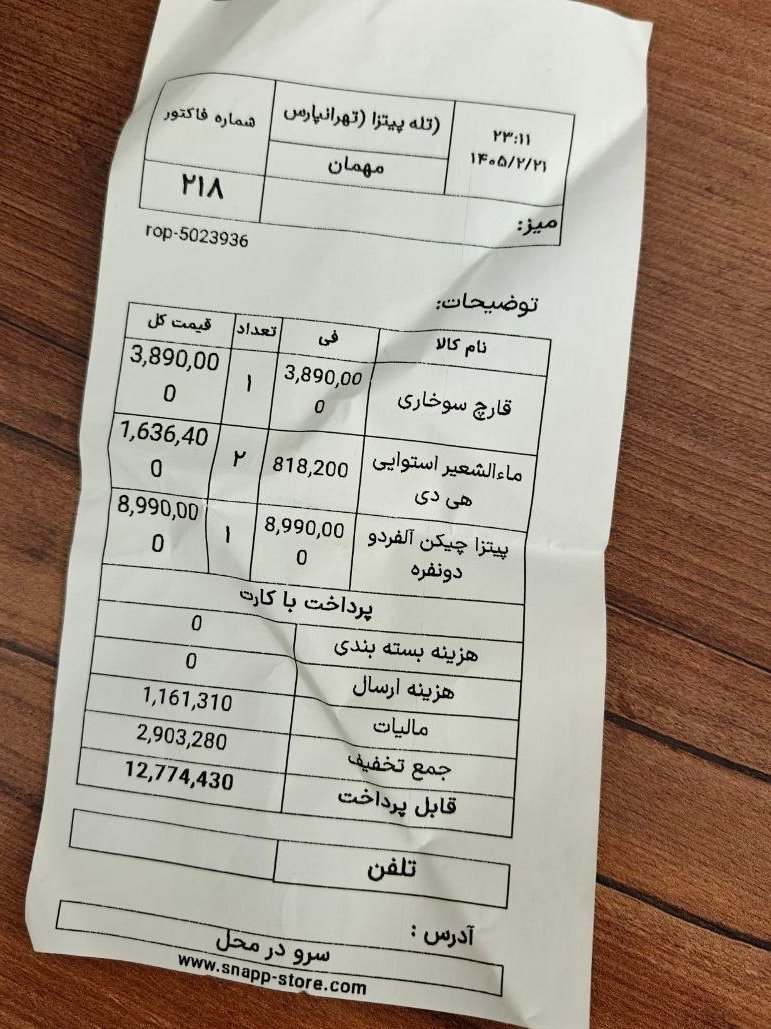 ۲۳:۱۱
۱۴۰۵/۲/۲۱
(تله پیتزا (تهرانپارس
مهمان
شماره فاکتور
۲۱۸
میز:
rop-5023936
توضیحات:
نام کالا فی تعداد قیمت کل
قارچ سوخاری 3,890,000 ۱ 3,890,000
ماءالشعیر استوایی هی دی 818,200 ۲ 1,636,400
پیتزا چیکن آلفردو دونفره 8,990,000 ۱ 8,990,000
پرداخت با کارت
هزینه بسته بندی 0
هزینه ارسال 0
مالیات 1,161,310
جمع تخفیف 2,903,280
قابل پرداخت 12,774,430
تلفن
آدرس :
سرو در محل
www.snapp-store.com